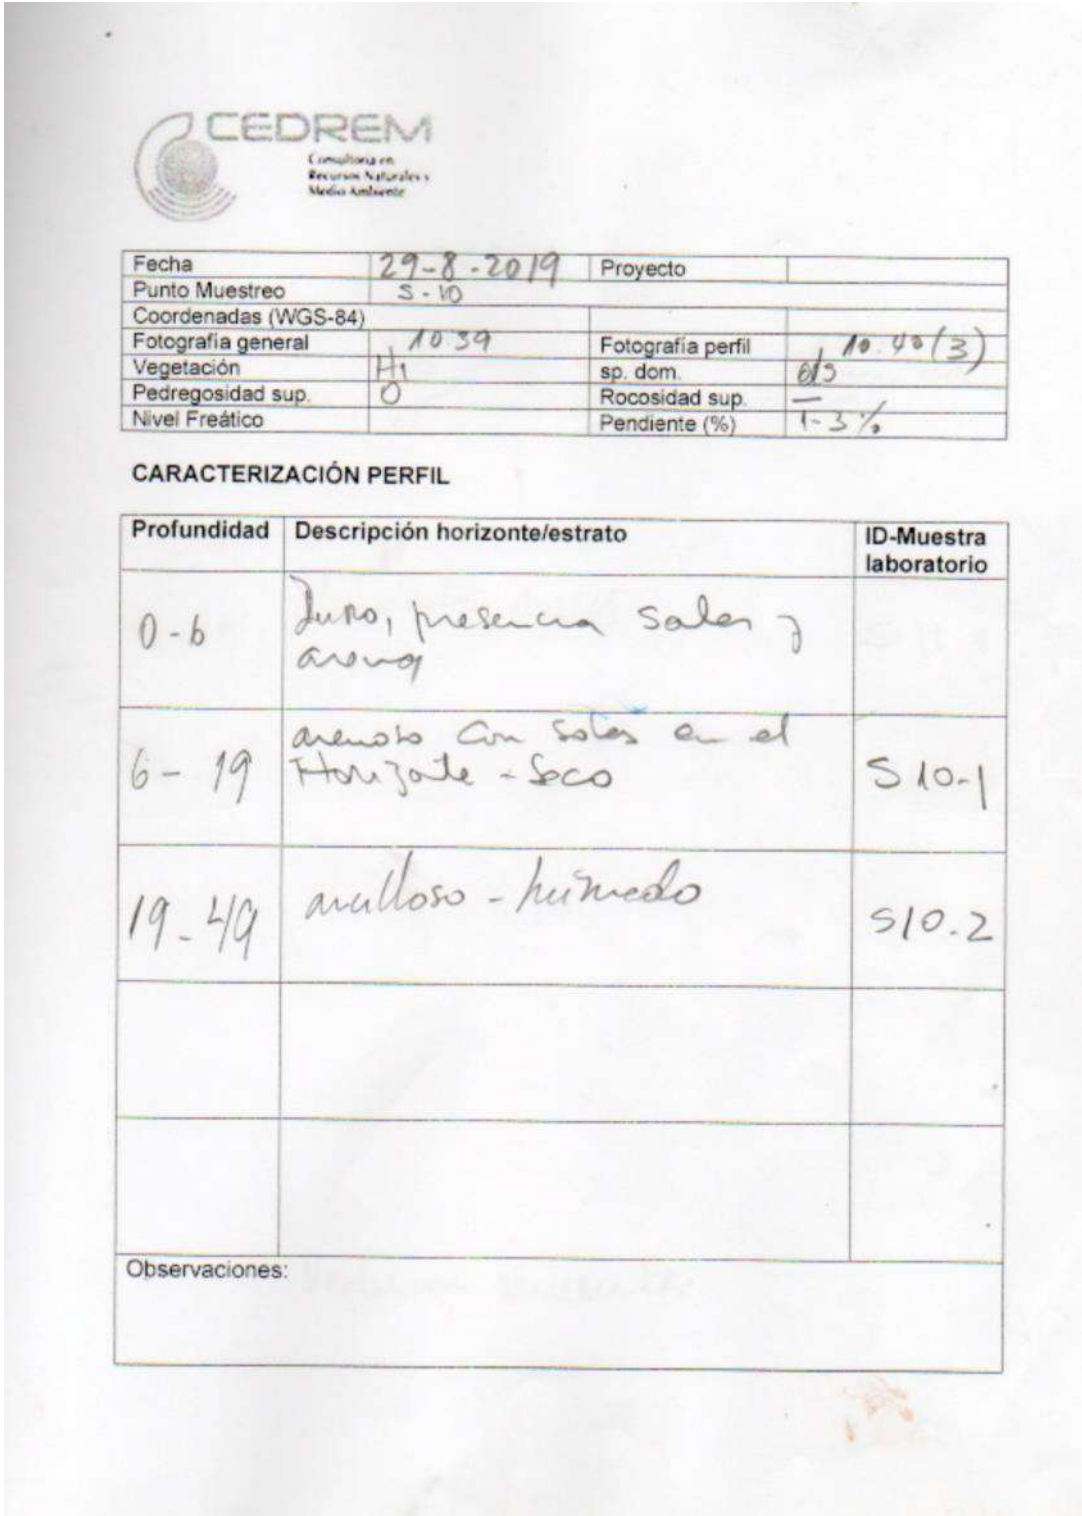 CEDREM
Consultoria en
Recursos Naturales y
Medio Ambiente
Fecha 29-8-2019 Proyecto
Punto Muestreo S-10
Coordenadas (WGS-84)
Fotografía general 10 39 Fotografía perfil 10.40 (3)
Vegetación Hi sp. dom. dis
Pedregosidad sup. 0 Rocosidad sup. —
Nivel Freático Pendiente (%) 1-3%
CARACTERIZACIÓN PERFIL
Profundidad Descripción horizonte/estrato ID-Muestra
laboratorio
0-6 Duro, presencia sales y
arena
6-19 arenoso con sales en el
Horizonte - Seco S10-1
19-49 arcilloso - húmedo S10.2
Observaciones: